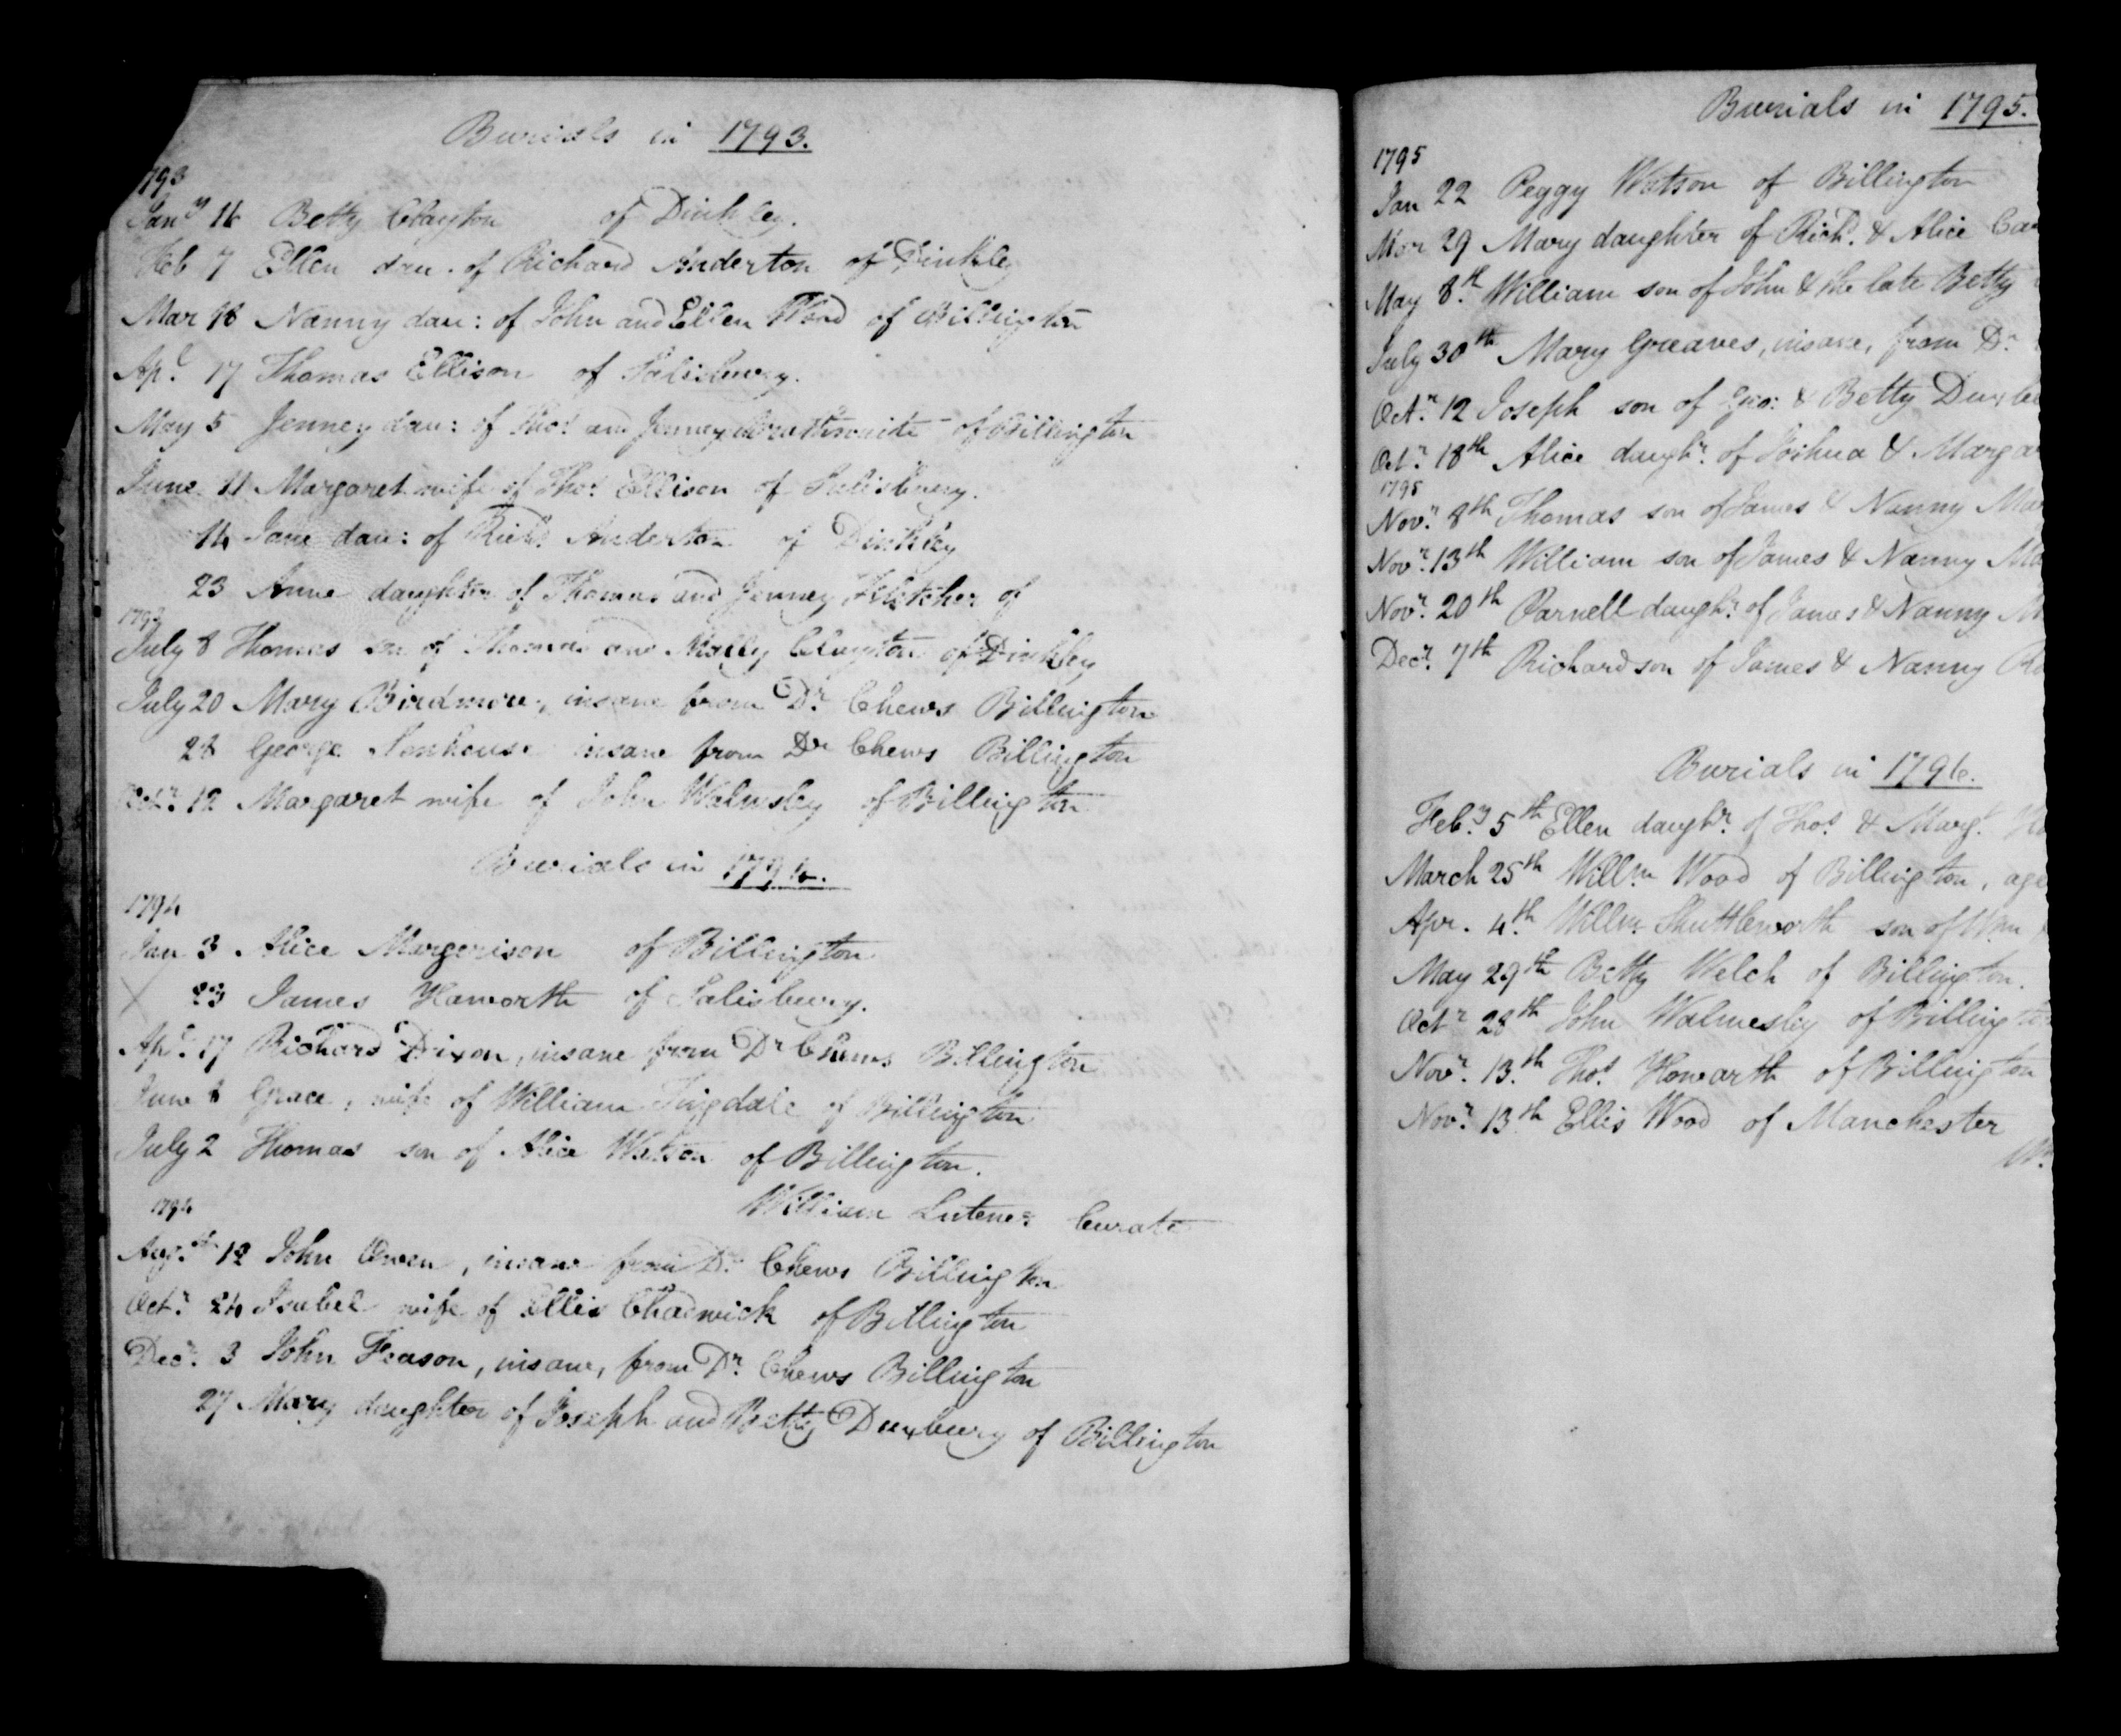 Burials in 1793.
1793
Jany 16 Betty Clayton of Dinkley.
Feb 7 Ellen dau. of Richard Anderton of Dinkley
Mar 16 Nanny dau: of John and Ellen Wood of Billington
Apl. 17 Thomas Ellison of Salisbury.
May 5 Jenney dau: of Thos. and Jenney of Billington
June 11 Margaret wife of Thos. Ellison of Salisbury.
14 Jane dau: of Richd. Anderton of Dinkley
23 Anne daughter of Thomas and Jenney Fletcher of
1793
July 8 Thomas son of Thomas and Molly Clayton of Dinkley
July 20 Mary Birdmore, insane from Dr. Chews Billington
28 George insane from Dr Chews Billington
12 Margaret wife of John Walmsley of Billington
Burials in 1794.
1794
Jan 3 Alice Margerison of Billington
X 23 James Haworth of Salisbury.
Apl. 17 Richard Dixon, insane from Dr Chews Billington
June Grace, wife of William of Billington
July 2 Thomas son of Alice Watson of Billington.
William Lutener Curate
1794
Augst. 12 John Owen, insane from Dr. Chews Billington
Octr. 24 Isabel wife of Ellis Chadwick of Billington
Decr. 3 John Feason, insane, from Dr. Chews Billington
27 Mary daughter of Joseph and Betty Duxbury of Billington
Burials in 1795.
1795
Jan 22 Peggy Watson of Billington
Mar 29 Mary daughter of Richd. & Alice
May 8th. William son of John & the late Betty
July 30th Mary Greaves, insane, from Dr.
Octr. 12 Joseph son of Geo: & Betty Duxbu
Octr. 18th Alice daughr. of Joshua & Margar
1795
Novr. 8th Thomas son of James & Nanny Mar
Novr. 13th William son of James & Nanny Ma
Novr. 20th Parnell daughr. of James & Nanny M
Decr. 7th Richard son of James & Nanny
Burials in 1796.
Feby. 5th Ellen daughr. of Thos. & Margt.
March 25th Willm Wood of Billington, age
Apr. 4th. Willm. Shuttleworth son of Wm
May 29th Betty Welch of Billington.
Octr 28th John Walmesley of Billington
Novr. 13.th Thos. Howarth of Billington
Novr. 13th Ellis Wood of Manchester